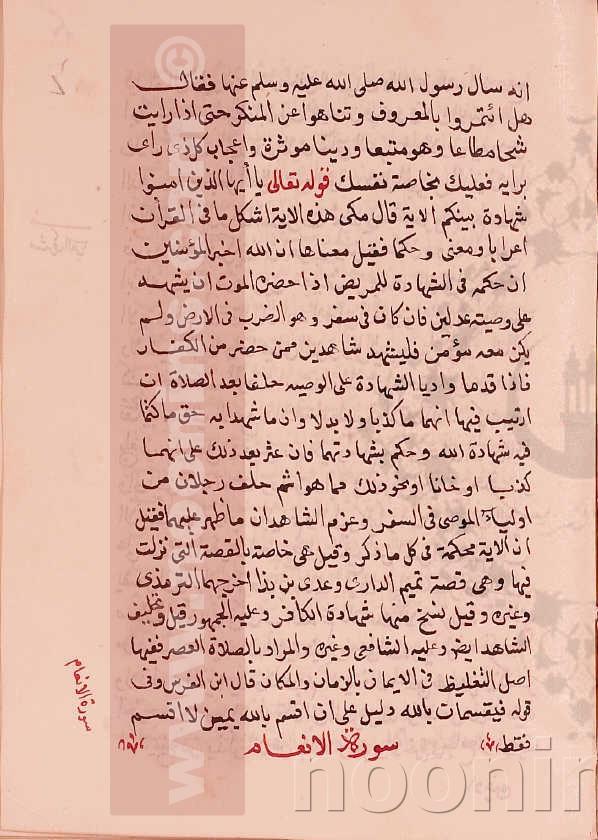 انه سال رسول الله صلى الله عليه وسلم عنها فقال
هل ائتمروا بالمعروف وتناهوا عن المنكر حتى اذا رايت
شحا مطاعا وهو متبعا ودينا موثرة واعجاب كل ذى راى
برايه فعليك بخاصة نفسك قوله تعالى يا أيها الذين امنوا
شهادة بينكم الاية قال مكى هذه الاية اشكل ما فى القرآن
اعرابا ومعنى وحكما فقيل معناها ان الله اخبر المؤمنين
ان حكمه فى الشهادة للمريض اذا حضره الموت ان يشهد
على وصيته عدلين فان كان فى سفر وهو الضرب فى الارض ولم
يكن معه مؤمن فليشهد شاهدين ممن حضر من الكفار
فاذا قدما واديا الشهادة على الوصيه حلفا بعد الصلاة ان
ارتيب فيها انهما ما كذبا ولا بدلا وان ما شهدا به حق ما كتما
فيه شهادة الله وحكم بشهادتهما فان عثر بعد ذلك على انهما
كذبا او خانا او نحو ذلك مما هو اثم حلف رجلان من
اولياء الموصى فى السفر وعزم الشاهدان ما ظهر عليهما فقيل
ان الاية محكمة فى كل ما ذكر وقيل هى خاصة بالقصة التى نزلت
فيها وهى قصة تميم الدارى وعدى بن بذا اخرجهما الترمذى
وغيره وقيل نسخ منها شهادة الكافر وعليه الجمهور وقيل وتحليف
الشاهد ايضا وعليه الشافعى وغيره والمراد بالصلاة العصر ففيها
اصل التغليظ فى الايمان بالزمان والمكان قال ابن الفرس وفى
قوله فيقسمان بالله دليل على ان اقسم بالله يمين لا اقسم
فقط سورة الانعام
سورة الانعام
noonin